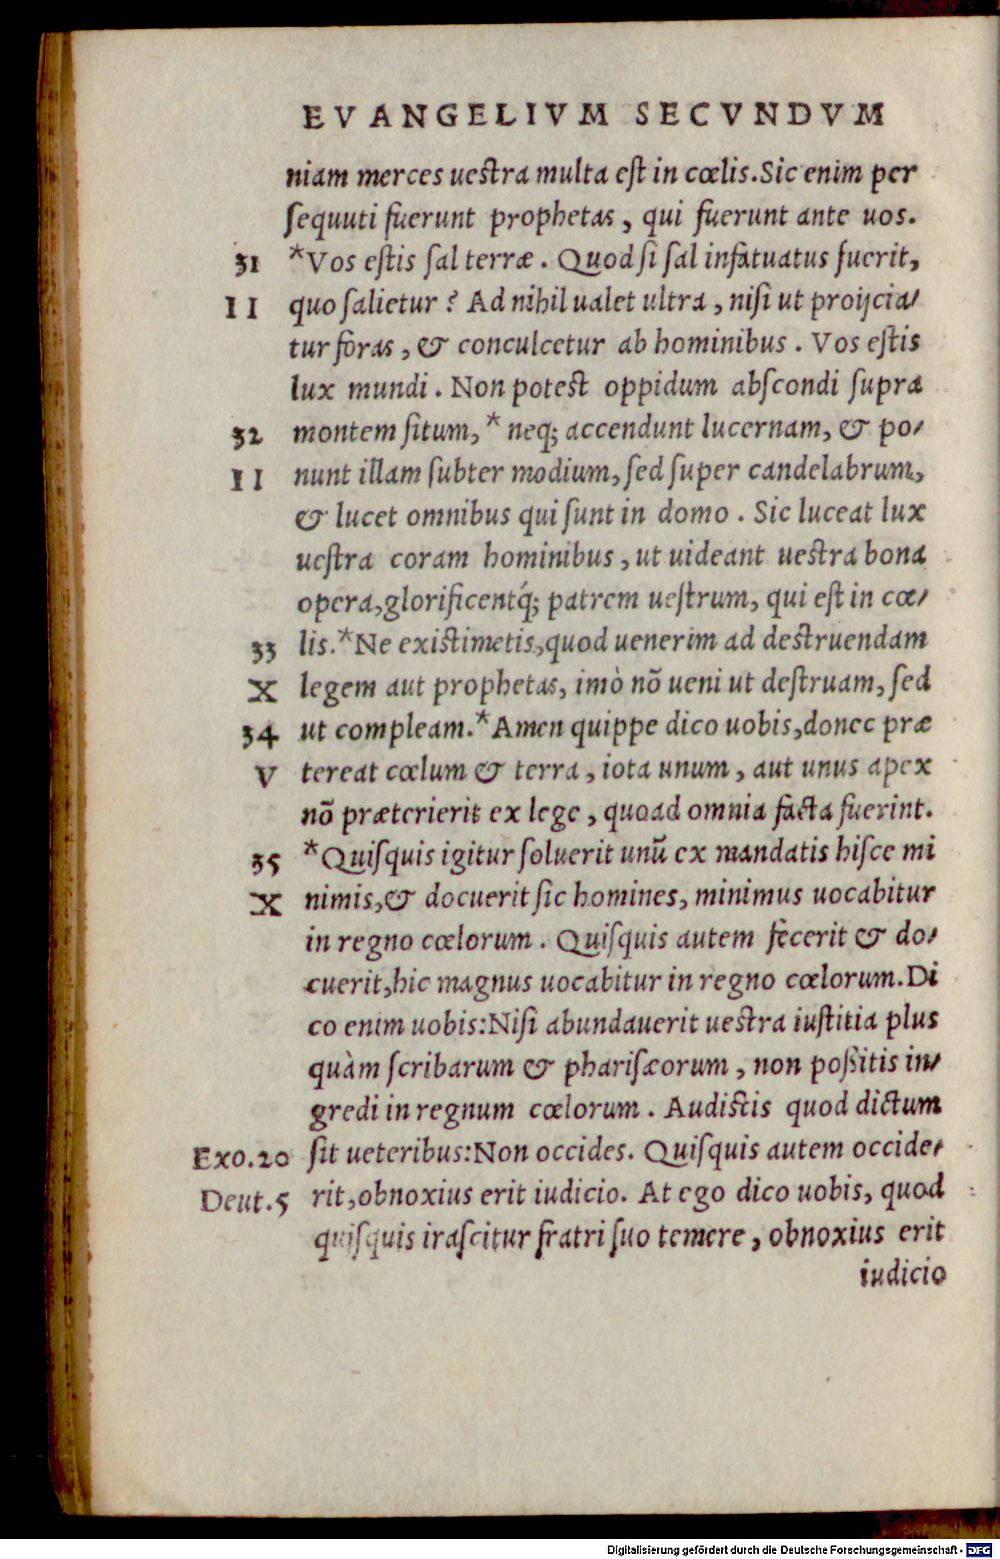 EVANGELIVM SECVNDVM
niam merces uestra multa est in cœlis. Sic enim per
sequuti fuerunt prophetas, qui fuerunt ante uos.
31 *Vos estis sal terræ. Quod si sal infatuatus fuerit,
II quo salietur? Ad nihil ualet ultra, nisi ut proijcia/
tur foras, & conculcetur ab hominibus. Vos estis
lux mundi. Non potest oppidum abscondi supra
32 montem situm, * neq; accendunt lucernam, & po/
II nunt illam subter modium, sed super candelabrum,
& lucet omnibus qui sunt in domo. Sic luceat lux
uestra coram hominibus, ut uideant uestra bona
opera, glorificentq́; patrem uestrum, qui est in cœ/
33 lis. *Ne existimetis, quod uenerim ad destruendam
X legem aut prophetas, imò nõ ueni ut destruam, sed
34 ut compleam. *Amen quippe dico uobis, donec præ
V tereat cœlum & terra, iota unum, aut unus apex
nõ præterierit ex lege, quoad omnia facta fuerint.
35 *Quisquis igitur soluerit unũ ex mandatis hisce mi
X nimis, & docuerit sic homines, minimus uocabitur
in regno cœlorum. Quisquis autem fecerit & do/
cuerit, hic magnus uocabitur in regno cœlorum. Di
co enim uobis: Nisi abundauerit uestra iustitia plus
quàm scribarum & pharisæorum, non poßitis in/
gredi in regnum cœlorum. Audistis quod dictum
Exo.20 sit ueteribus: Non occides. Quisquis autem occide/
Deut.5 rit, obnoxius erit iudicio. At ego dico uobis, quod
quisquis irascitur fratri suo temere, obnoxius erit
iudicio
Digitalisierung gefördert durch die Deutsche Forschungsgemeinschaft - DFG